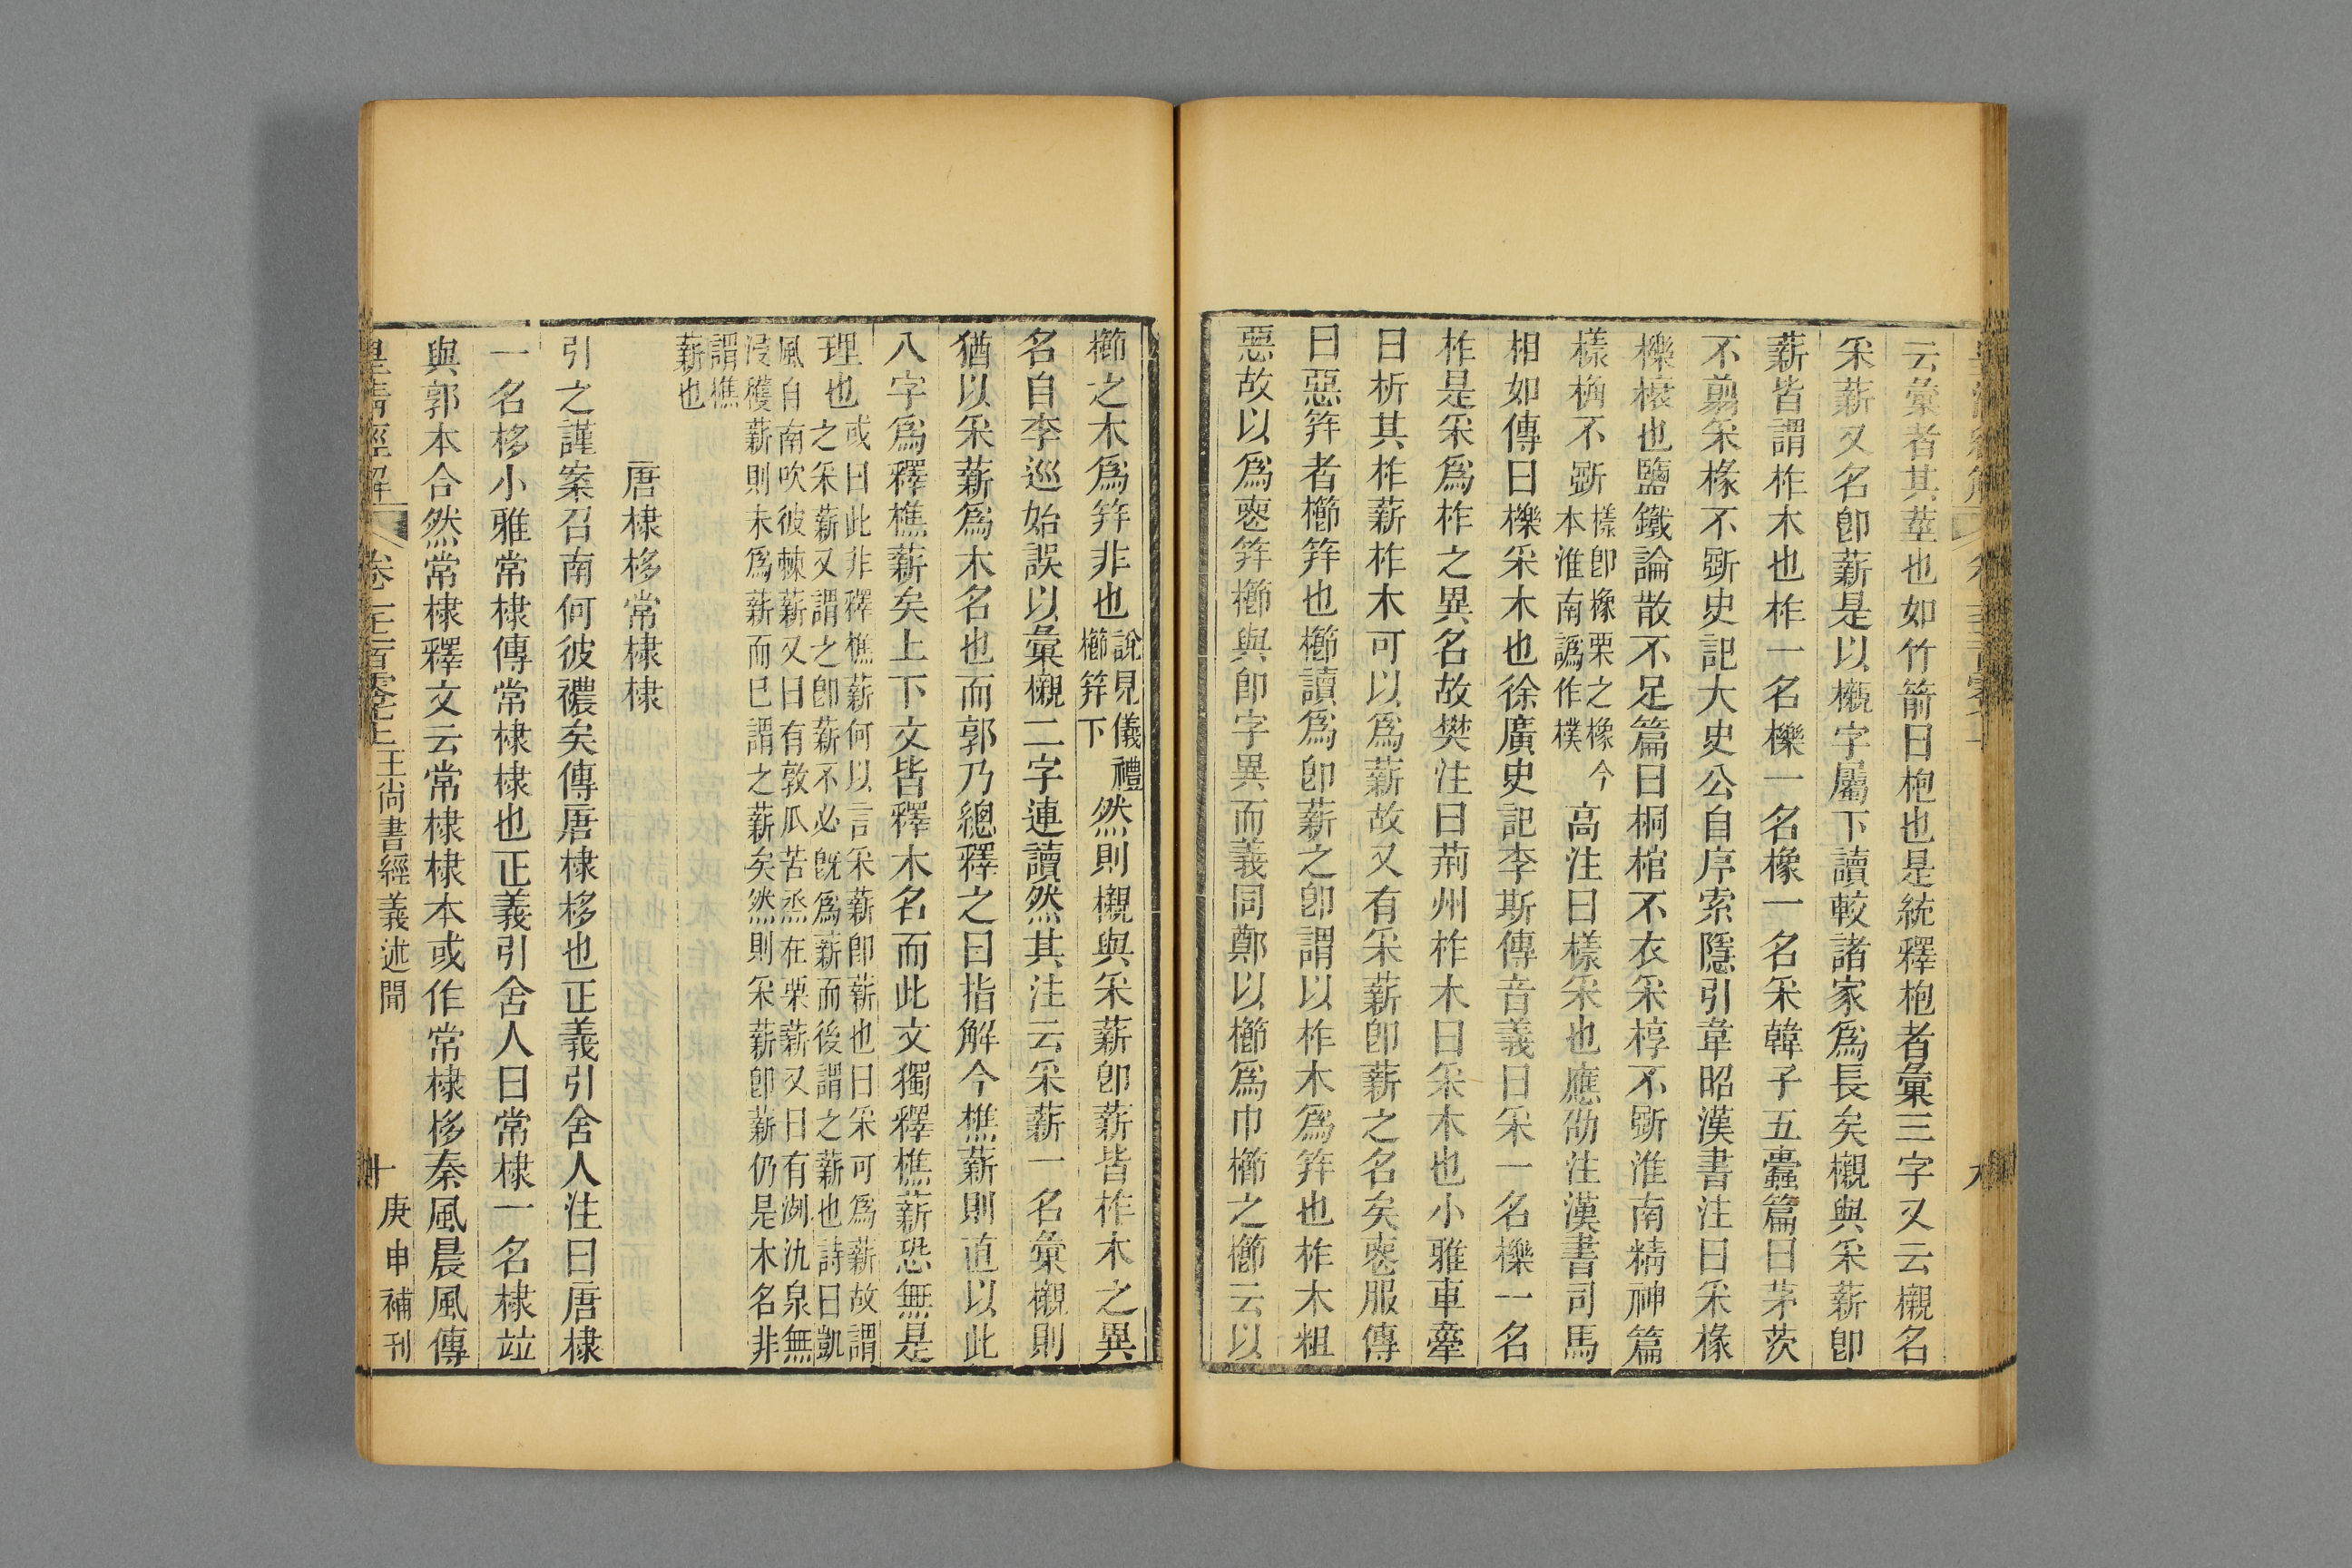 云彙者其莖也如竹箭曰枹也是統釋枹者彙三字又云櫬名
采薪又名卽薪是以櫬字屬下讀較諸家爲長矣櫬與采薪卽
薪皆謂柞木也柞一名櫟一名橡一名采韓子五蠹篇曰茅茨
不翦采椽不斲史記大史公自序索隱引韋昭漢書注曰采椽
櫟榱也鹽鐵論散不足篇曰桐棺不衣采椁不斲淮南精神篇
樣桷不斲樣卽橡栗之橡今本淮南譌作樸高注曰樣采也應劭注漢書司馬
相如傳曰櫟采木也徐廣史記李斯傳音義曰采一名櫟一名
柞是采爲柞之異名故樊注曰荊州柞木曰采木也小雅車舝
曰析其柞薪柞木可以爲薪故又有采薪卽薪之名矣喪服傳
曰惡筓者櫛筓也櫛讀爲卽薪之卽謂以柞木爲筓也柞木粗
惡故以爲喪筓櫛與卽字異而義同鄭以櫛爲巾櫛之櫛云以
櫛之木爲筓非也說見儀禮櫛筓下然則櫬與采薪卽薪皆柞木之異
名自李巡始誤以彙櫬二字連讀然其注云采薪一名彙櫬則
猶以采薪爲木名也而郭乃總釋之曰指解今樵薪則直以此
八字爲釋樵薪矣上下文皆釋木名而此文獨釋樵薪恐無是
理也或曰此非釋樵薪何以言采薪卽薪也曰采可爲薪故謂
之采薪又謂之卽薪不必旣爲薪而後謂之薪也詩曰凱
風自南吹彼棘薪又曰有敦瓜苦烝在栗薪又曰有洌氿泉無
浸穫薪則未爲薪而已謂之薪矣然則采薪卽薪仍是木名非
謂樵
薪也
唐棣栘常棣棣
引之謹案召南何彼襛矣傳唐棣栘也正義引舍人注曰唐棣
一名栘小雅常棣傳常棣棣也正義引舍人曰常棣一名棣竝
與郭本合然常棣釋文云常棣棣本或作常棣栘秦風晨風傳
皇清經解 卷一千二百零七上 王尚書經義述聞 十 庚申補刊